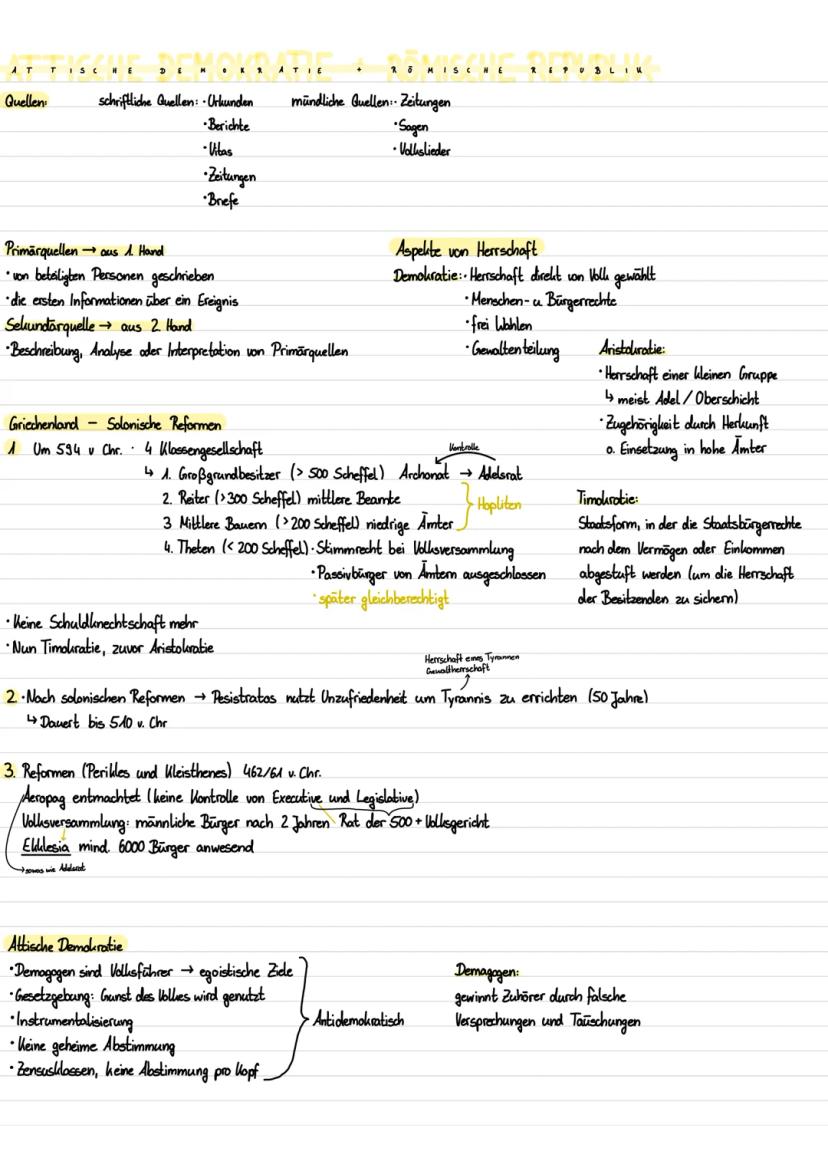 ATTISCHE DEMOKRATIE + RÖMISCHE REPUBLIK
Quellen: schriftliche Quellen: · Urkunden mündliche Quellen: · Zeitungen
· Berichte · Sagen
· Vitas · Volkslieder
· Zeitungen
· Briefe
Primärquellen → aus 1. Hand
· von beteiligten Personen geschrieben
· die ersten Informationen über ein Ereignis
Sekundärquelle → aus 2. Hand
· Beschreibung, Analyse oder Interpretation von Primärquellen
Aspekte von Herrschaft
Demokratie: · Herrschaft direkt von Volk gewählt
· Menschen- u. Bürgerrechte
· frei Wahlen
· Gewaltenteilung
Aristokratie:
· Herrschaft einer kleinen Gruppe
↳ meist Adel / Oberschicht
· Zugehörigkeit durch Herkunft
o. Einsetzung in hohe Ämter
Griechenland – Solonische Reformen
1 Um 594 v Chr. · 4 Klassengesellschaft
Kontrolle
↳ 1. Großgrundbesitzer (> 500 Scheffel) Archonat → Adelsrat
2. Reiter (>300 Scheffel) mittlere Beamte
Hopliten
3 Mittlere Bauern (>200 Scheffel) niedrige Ämter
4. Theten (< 200 Scheffel) · Stimmrecht bei Volksversammlung
· Passivbürger von Ämtern ausgeschlossen
· später gleichberechtigt
Timokratie:
Staatsform, in der die Staatsbürgerrechte
nach dem Vermögen oder Einkommen
abgestuft werden (um die Herrschaft
der Besitzenden zu sichern)
· Keine Schuldknechtschaft mehr
· Nun Timokratie, zuvor Aristokratie
Herrschaft eines Tyrannen
Gewaltherrschaft
2 · Nach solonischen Reformen → Pesistratos nutzt Unzufriedenheit um Tyrannis zu errichten (50 Jahre)
↳ Dauert bis 510 v. Chr
3. Reformen (Perikles und Kleisthenes) 462/61 v. Chr.
Aeropag entmachtet (keine Kontrolle von Executive und Legislative)
Volksversammlung: männliche Bürger nach 2 Jahren Rat der 500 + Volksgericht
Ekklesia mind. 6000 Bürger anwesend
→ sowas wie Adelsrat
Attische Demokratie
· Demagogen sind Volksführer → egoistische Ziele
· Gesetzgebung: Gunst des Volkes wird genutzt
· Instrumentalisierung
Antidemokratisch
· Keine geheime Abstimmung
· Zensusklassen, keine Abstimmung pro Kopf
Demagogen:
gewinnt Zuhörer durch falsche
Versprechungen und Täuschungen